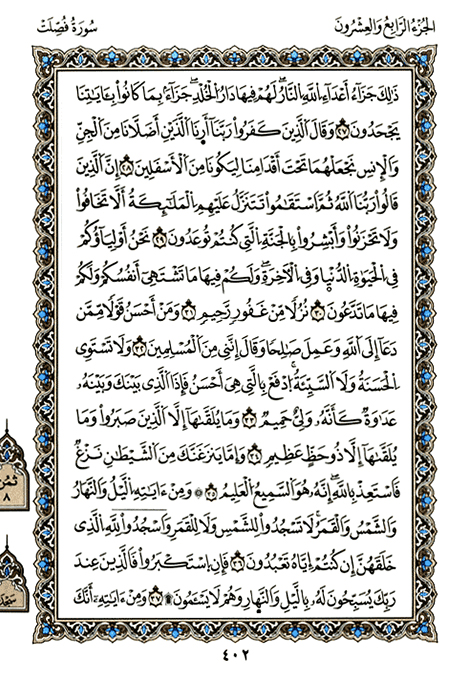 الجُزْءُ الرَّابِعُ وَالعِشْرُونَ
سُورَةُ فُصِّلَتْ
ذَٰلِكَ جَزَآءُ أَعْدَآءِ اللَّهِ النَّارُ لَهُمْ فِيهَا دَارُ الْخُلْدِ جَزَآءً بِمَا كَانُوا بِـَٔايَٰتِنَا
يَجْحَدُونَ ٢٧ وَقَالَ الَّذِينَ كَفَرُوا رَبَّنَا أَرِنَا الَّذَيْنِ أَضَلَّانَا مِنَ الْجِنِّ
وَالْإِنسِ نَجْعَلْهُمَا تَحْتَ أَقْدَامِنَا لِيَكُونَا مِنَ الْأَسْفَلِينَ ٢٨ إِنَّ الَّذِينَ
قَالُوا رَبُّنَا اللَّهُ ثُمَّ اسْتَقَٰمُوا تَتَنَزَّلُ عَلَيْهِمُ الْمَلَٰٓئِكَةُ أَلَّا تَخَافُوا
وَلَا تَحْزَنُوا وَأَبْشِرُوا بِالْجَنَّةِ الَّتِي كُنتُمْ تُوعَدُونَ ٢٩ نَحْنُ أَوْلِيَآؤُكُمْ
فِي الْحَيَوٰةِ الدُّنْيَا وَفِي الْآخِرَةِ وَلَكُمْ فِيهَا مَا تَشْتَهِي أَنفُسُكُمْ وَلَكُمْ
فِيهَا مَا تَدَّعُونَ ٣٠ نُزُلًا مِّنْ غَفُورٍ رَّحِيمٍ ٣١ وَمَنْ أَحْسَنُ قَوْلًا مِّمَّن
دَعَا إِلَى اللَّهِ وَعَمِلَ صَٰلِحًا وَقَالَ إِنَّنِي مِنَ الْمُسْلِمِينَ ٣٢ وَلَا تَسْتَوِي
الْحَسَنَةُ وَلَا السَّيِّئَةُ ادْفَعْ بِالَّتِي هِيَ أَحْسَنُ فَإِذَا الَّذِي بَيْنَكَ وَبَيْنَهُ
عَدَاوَةٌ كَأَنَّهُ وَلِيٌّ حَمِيمٌ ٣٣ وَمَا يُلَقَّىٰهَا إِلَّا الَّذِينَ صَبَرُوا وَمَا
يُلَقَّىٰهَا إِلَّا ذُو حَظٍّ عَظِيمٍ ٣٤ وَإِمَّا يَنزَغَنَّكَ مِنَ الشَّيْطَٰنِ نَزْغٌ
فَاسْتَعِذْ بِاللَّهِ إِنَّهُ هُوَ السَّمِيعُ الْعَلِيمُ ٣٥ وَمِنْ ءَايَٰتِهِ الَّيْلُ وَالنَّهَارُ
وَالشَّمْسُ وَالْقَمَرُ لَا تَسْجُدُوا لِلشَّمْسِ وَلَا لِلْقَمَرِ وَاسْجُدُوا لِلَّهِ الَّذِي
خَلَقَهُنَّ إِن كُنتُمْ إِيَّاهُ تَعْبُدُونَ ٣٦ فَإِنِ اسْتَكْبَرُوا فَالَّذِينَ عِندَ
رَبِّكَ يُسَبِّحُونَ لَهُ بِالَّيْلِ وَالنَّهَارِ وَهُمْ لَا يَسْـَٔمُونَ ٣٧ وَمِنْ ءَايَٰتِهِ أَنَّكَ
ثُمُن
٨
سَجْدَة
٤٠٢